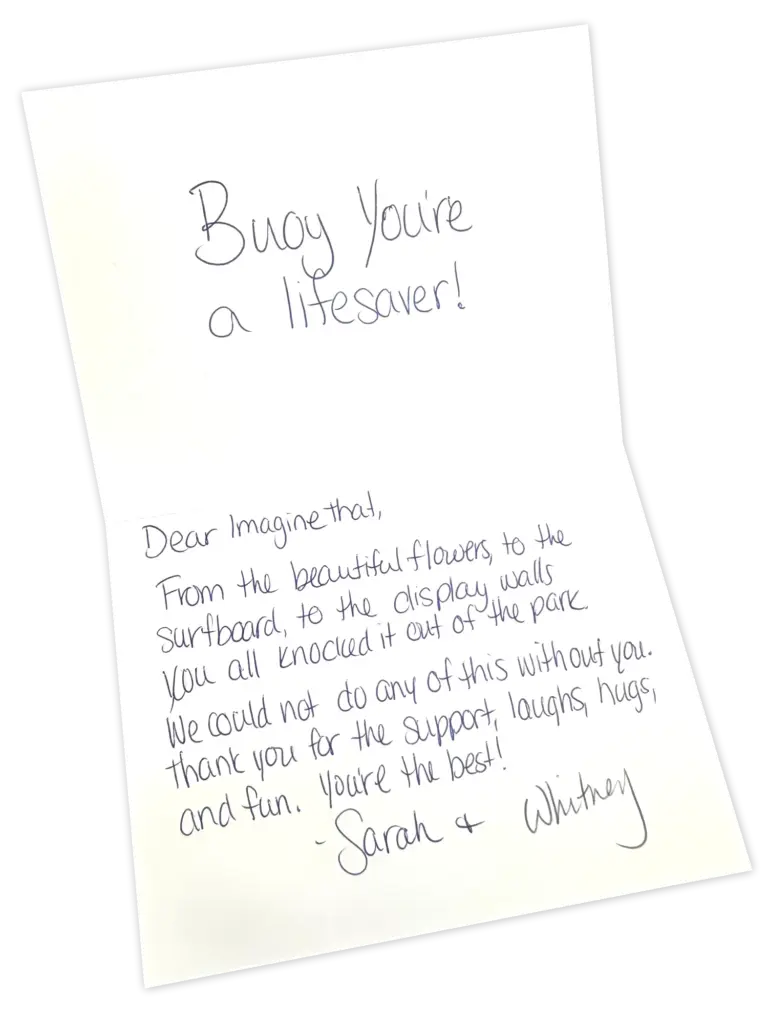 Buoy You're
a lifesaver!
Dear Imagine that,
From the beautiful flowers, to the
surfboard, to the display walls
you all knocked it out of the park.
We could not do any of this without you.
thank you for the support, laughs, hugs,
and fun. You're the best!
- Sarah + Whitney